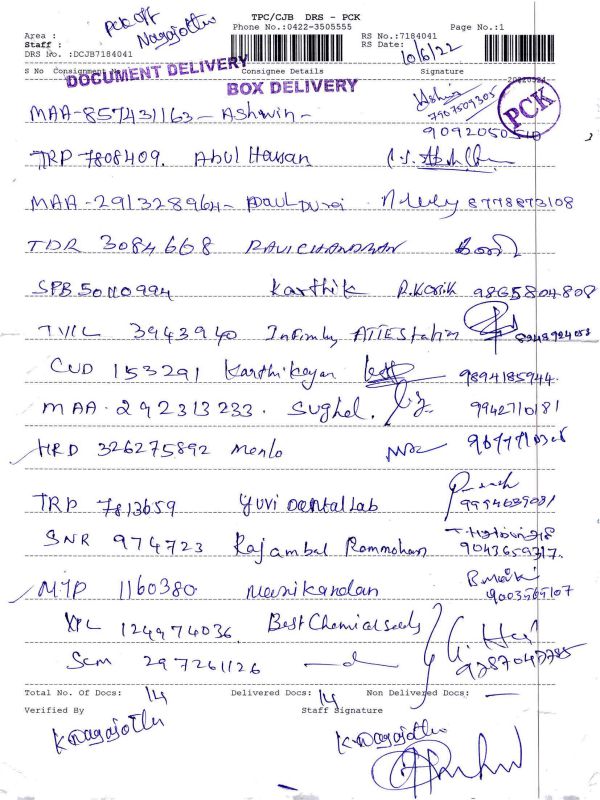 TPC/CJB DRS - PCK
PCK off
Nagajothi
Phone No.:0422-3505555
Page No.:1
Area :
Staff :
DRS No. :DCJB7184041
RS No.:7184041
RS Date:
10/6/22
S No Consignment No
Consignee Details
Signature
DOCUMENT DELIVERY
BOX DELIVERY
PCK
7907509305
MAA-857431163- Ashwin-
9092050510
TRP 7808409. Abul Hassan
MAA-291328964- Paul Durai 8778873108
TDR 3084668 RAVICHANDRAN
SPB 50110994 Karthik R.Karthik 9865804808
3943940 Infinity ATTEStation
CUD 153291 Karthikeyan 9894185944.
MAA-292313233. Sughel. 9942710181
HRD 326275892 Menlo
TRP 7813659 Yuvi Dental Lab
9994639081
SNR 974723 Rajambal Rammohan
9043659317.
MTP 1160380 Manikandan
9003565107
124974036. Best Chemical seeds
297261126
9787047785
Total No. Of Docs: 14 Delivered Docs: 14 Non Delivered Docs: —
Verified By
Staff Signature
K. Nagajothi
K. Nagajothi